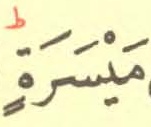 ط
مَيْسَرَةٍ